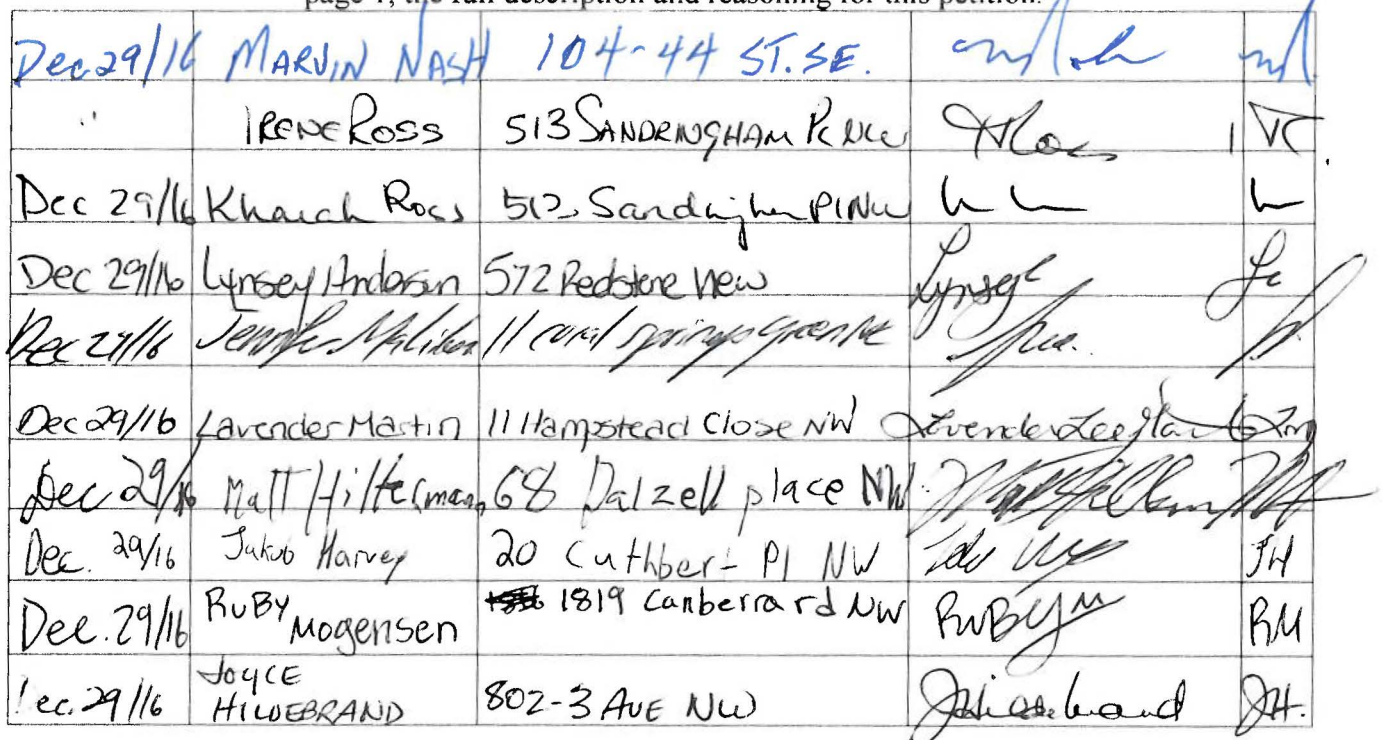 page 1, the full description and reasoning for this petition.
Dec 29/16 MARVIN NASH 104-44 ST. SE.
" IRENE ROSS 513 SANDRINGHAM Pl NW
Dec 29/16 Ross Pl NW
Dec 29/16 Lynsey Anderson 572 Redstone View Lynsey
Dec 29/16 Jennifer 11 coral springs Green NE
Dec 29/16 Lavender Martin 11 Hampstead Close NW Lavender Lee Lm
Dec 29/16 Matt Hilterman 68 Dalzell place NW MH
Dec. 29/16 Jakob Harvey 20 Cuthbert Pl NW JH
Dec. 29/16 RUBY Mogensen 1819 Canberra rd NW RUBY M RM
Dec. 29/16 JOYCE HILDEBRAND 802-3 AVE NW JHildebrand JH.